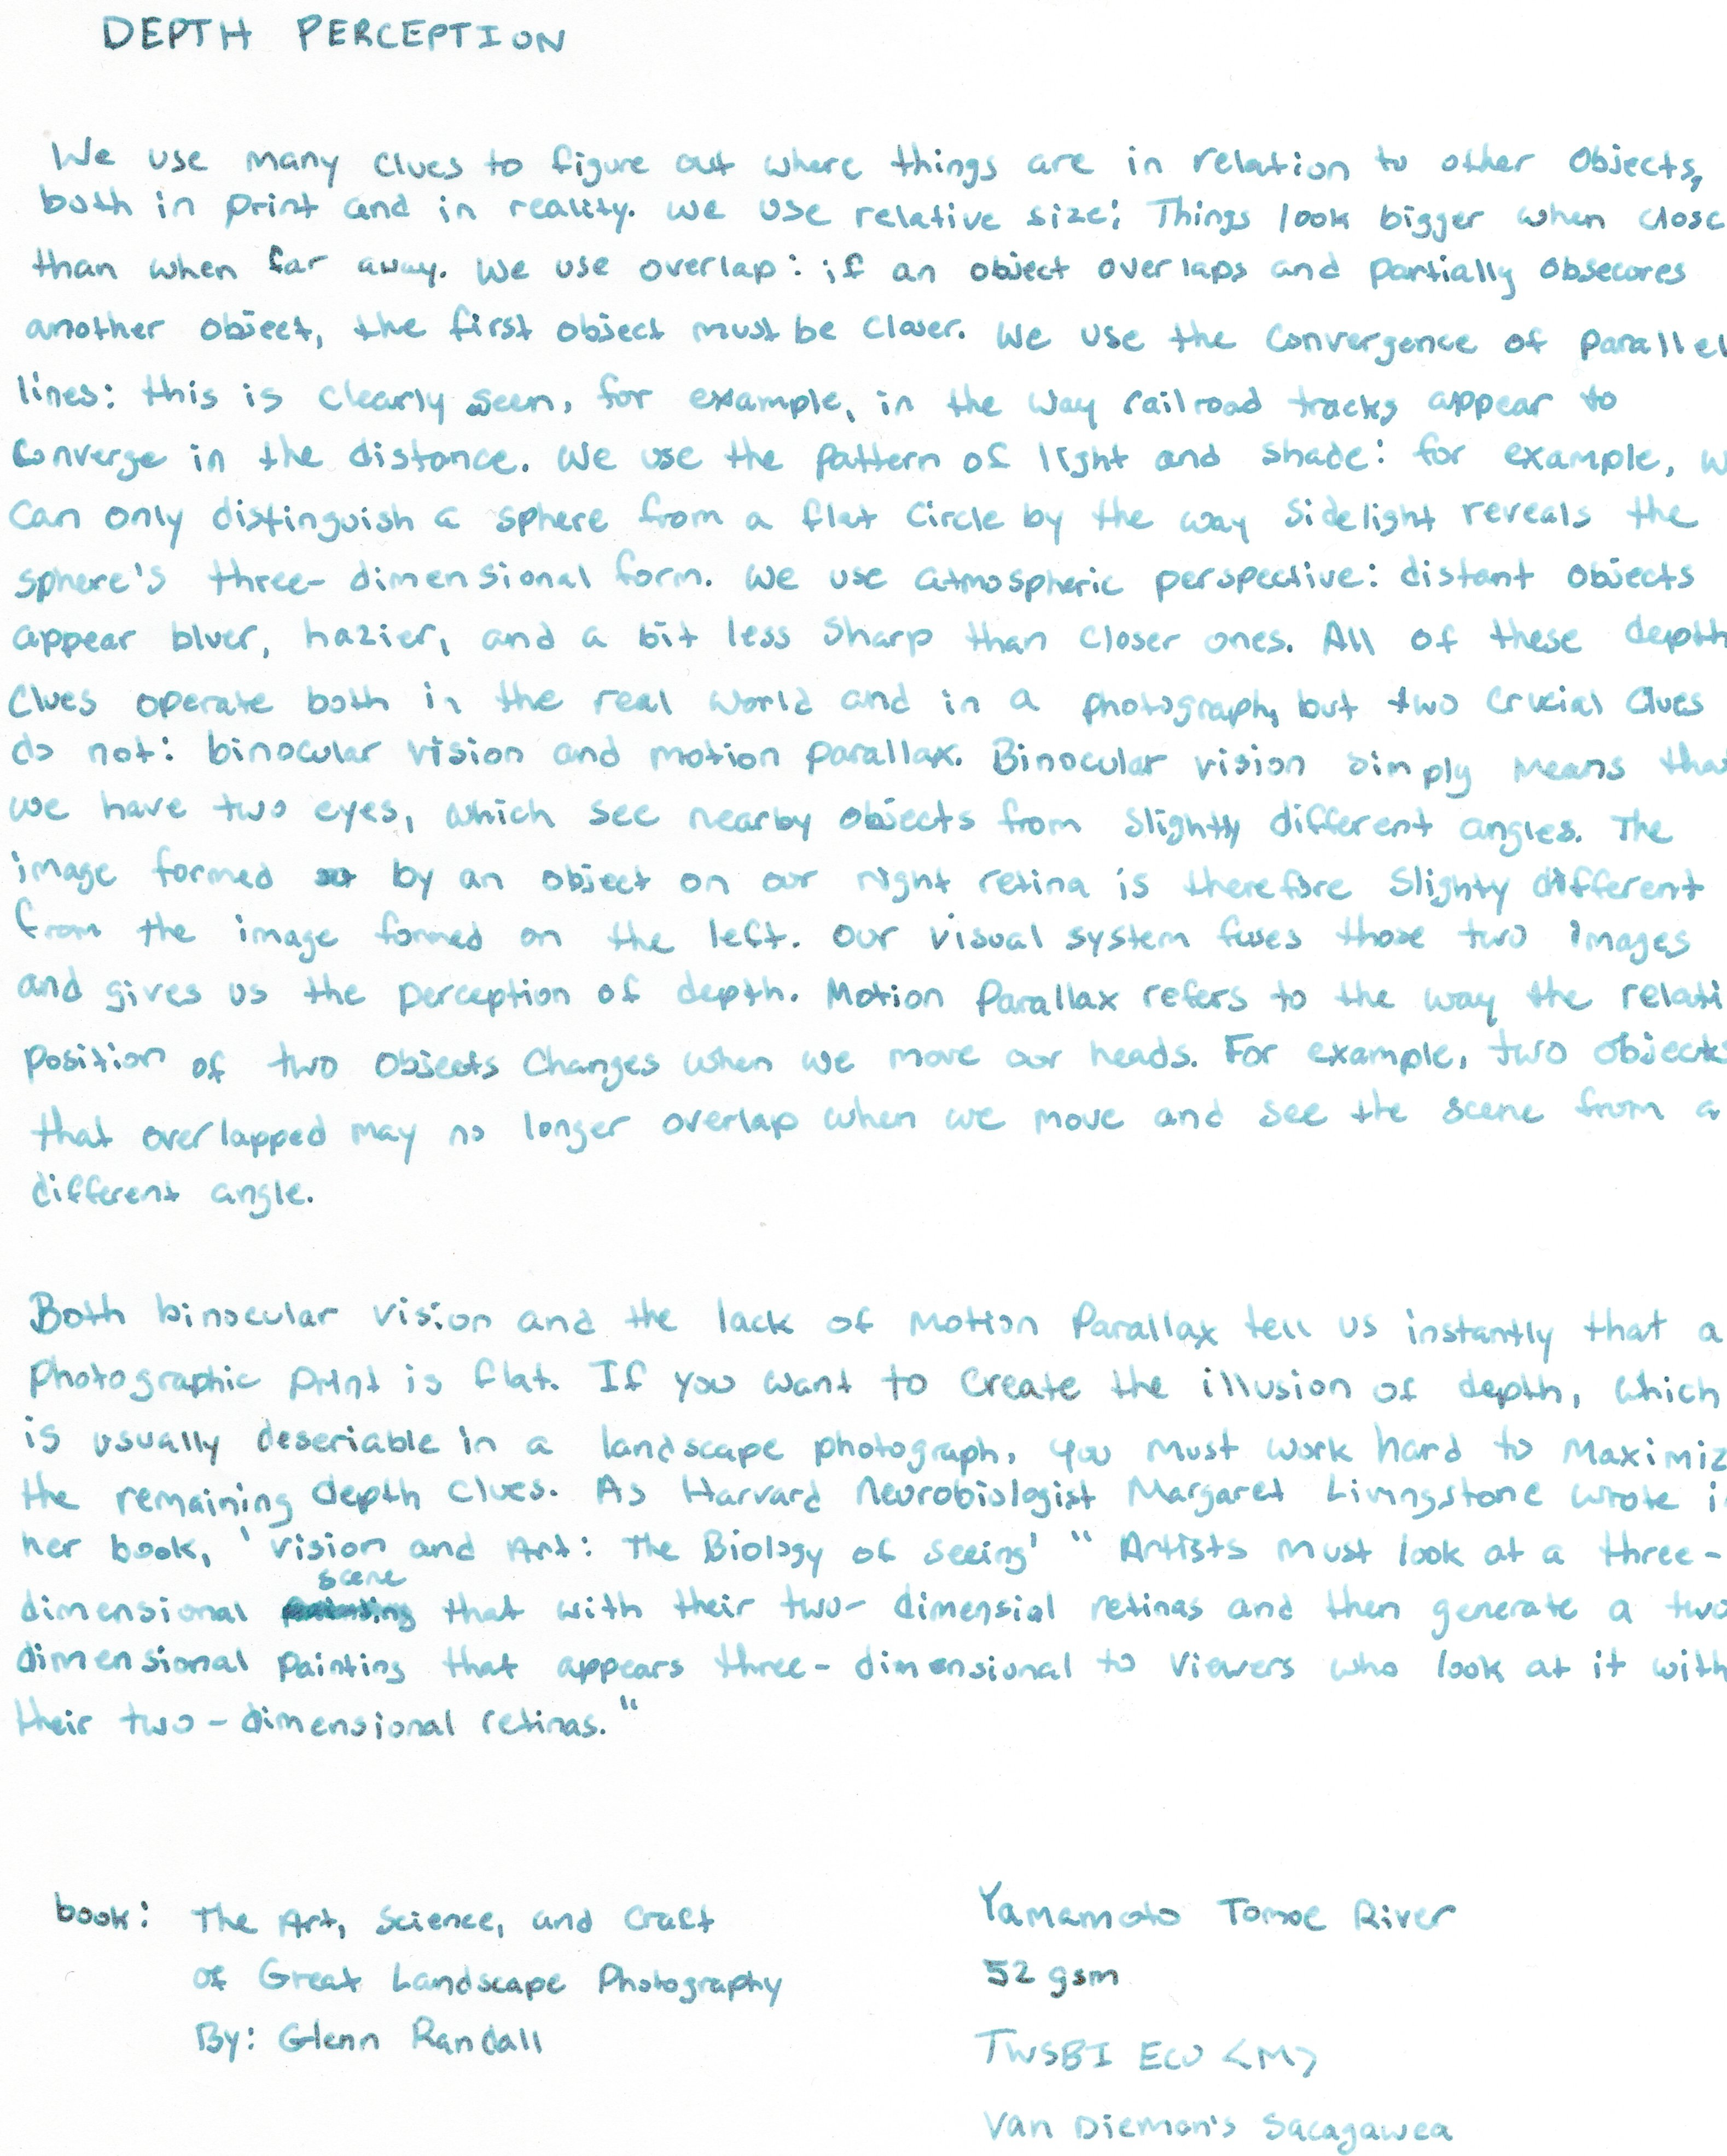 DEPTH PERCEPTION
We use many clues to figure out where things are in relation to other objects,
both in print and in reality. We use relative size; Things look bigger when close
than when far away. We use overlap: if an object overlaps and partially obsecures
another object, the first object must be closer. We use the convergence of parallel
lines: this is clearly seen, for example, in the way railroad tracks appear to
converge in the distance. We use the pattern of light and shade: for example, w
can only distinguish a sphere from a flat circle by the way sidelight reveals the
sphere's three-dimensional form. We use atmospheric perspective: distant objects
appear bluer, hazier, and a bit less sharp than closer ones. All of these depth
clues operate both in the real world and in a photograph, but two crucial clues
do not: binocular vision and motion parallax. Binocular vision simply means that
we have two eyes, which see nearby objects from slightly different angles. The
image formed by an object on our right retina is therefore slighty different
from the image formed on the left. Our visual system fuses those two images
and gives us the perception of depth. Motion Parallax refers to the way the relati
position of two objects changes when we move our heads. For example, two objects
that overlapped may no longer overlap when we move and see the scene from a
different angle.
Both binocular vision and the lack of motion parallax tell us instantly that a
photographic print is flat. If you want to create the illusion of depth, which
is usually deseriable in a landscape photograph, you must work hard to maximiz
the remaining depth clues. As Harvard Neurobiologist Margaret Livingstone wrote i
her book, 'vision and Art: The Biology of seeing' " Artists must look at a three-
dimensional scene that with their two-dimensial retinas and then generate a two
dimensional painting that appears three-dimensional to viewers who look at it with
their two-dimensional retinas."
book: The Art, Science, and Craft
of Great Landscape Photography
By: Glenn Randall
Yamamoto Tomoe River
52 gsm
TWSBI Eco <M>
Van Dieman's Sacagawea